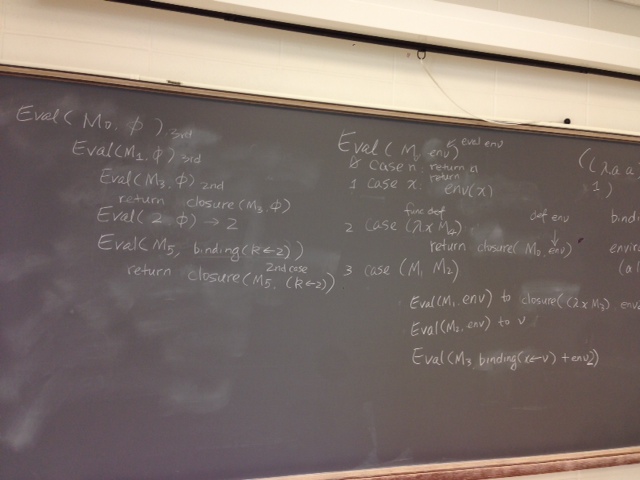 Eval( M0, ϕ ) 3rd
Eval(M1, ϕ) 3rd
Eval(M3, ϕ) 2nd
return closure(M3, ϕ)
Eval( 2, ϕ) → 2
Eval(M5, binding(k←2))
2nd case
return closure(M5, (k←2))
Eval( M, env) eval env
0 case n: return n
return
1 case x: env(x)
func def
2 case (λx M2)
def env
return closure( M0, env)
3 case (M1 M2)
Eval(M1, env) to closure((λx M3) env2
Eval(M2, env) to v
Eval(M3 binding(x←v) + env2)
((λa.a)
1)
bindin
enviro
(al